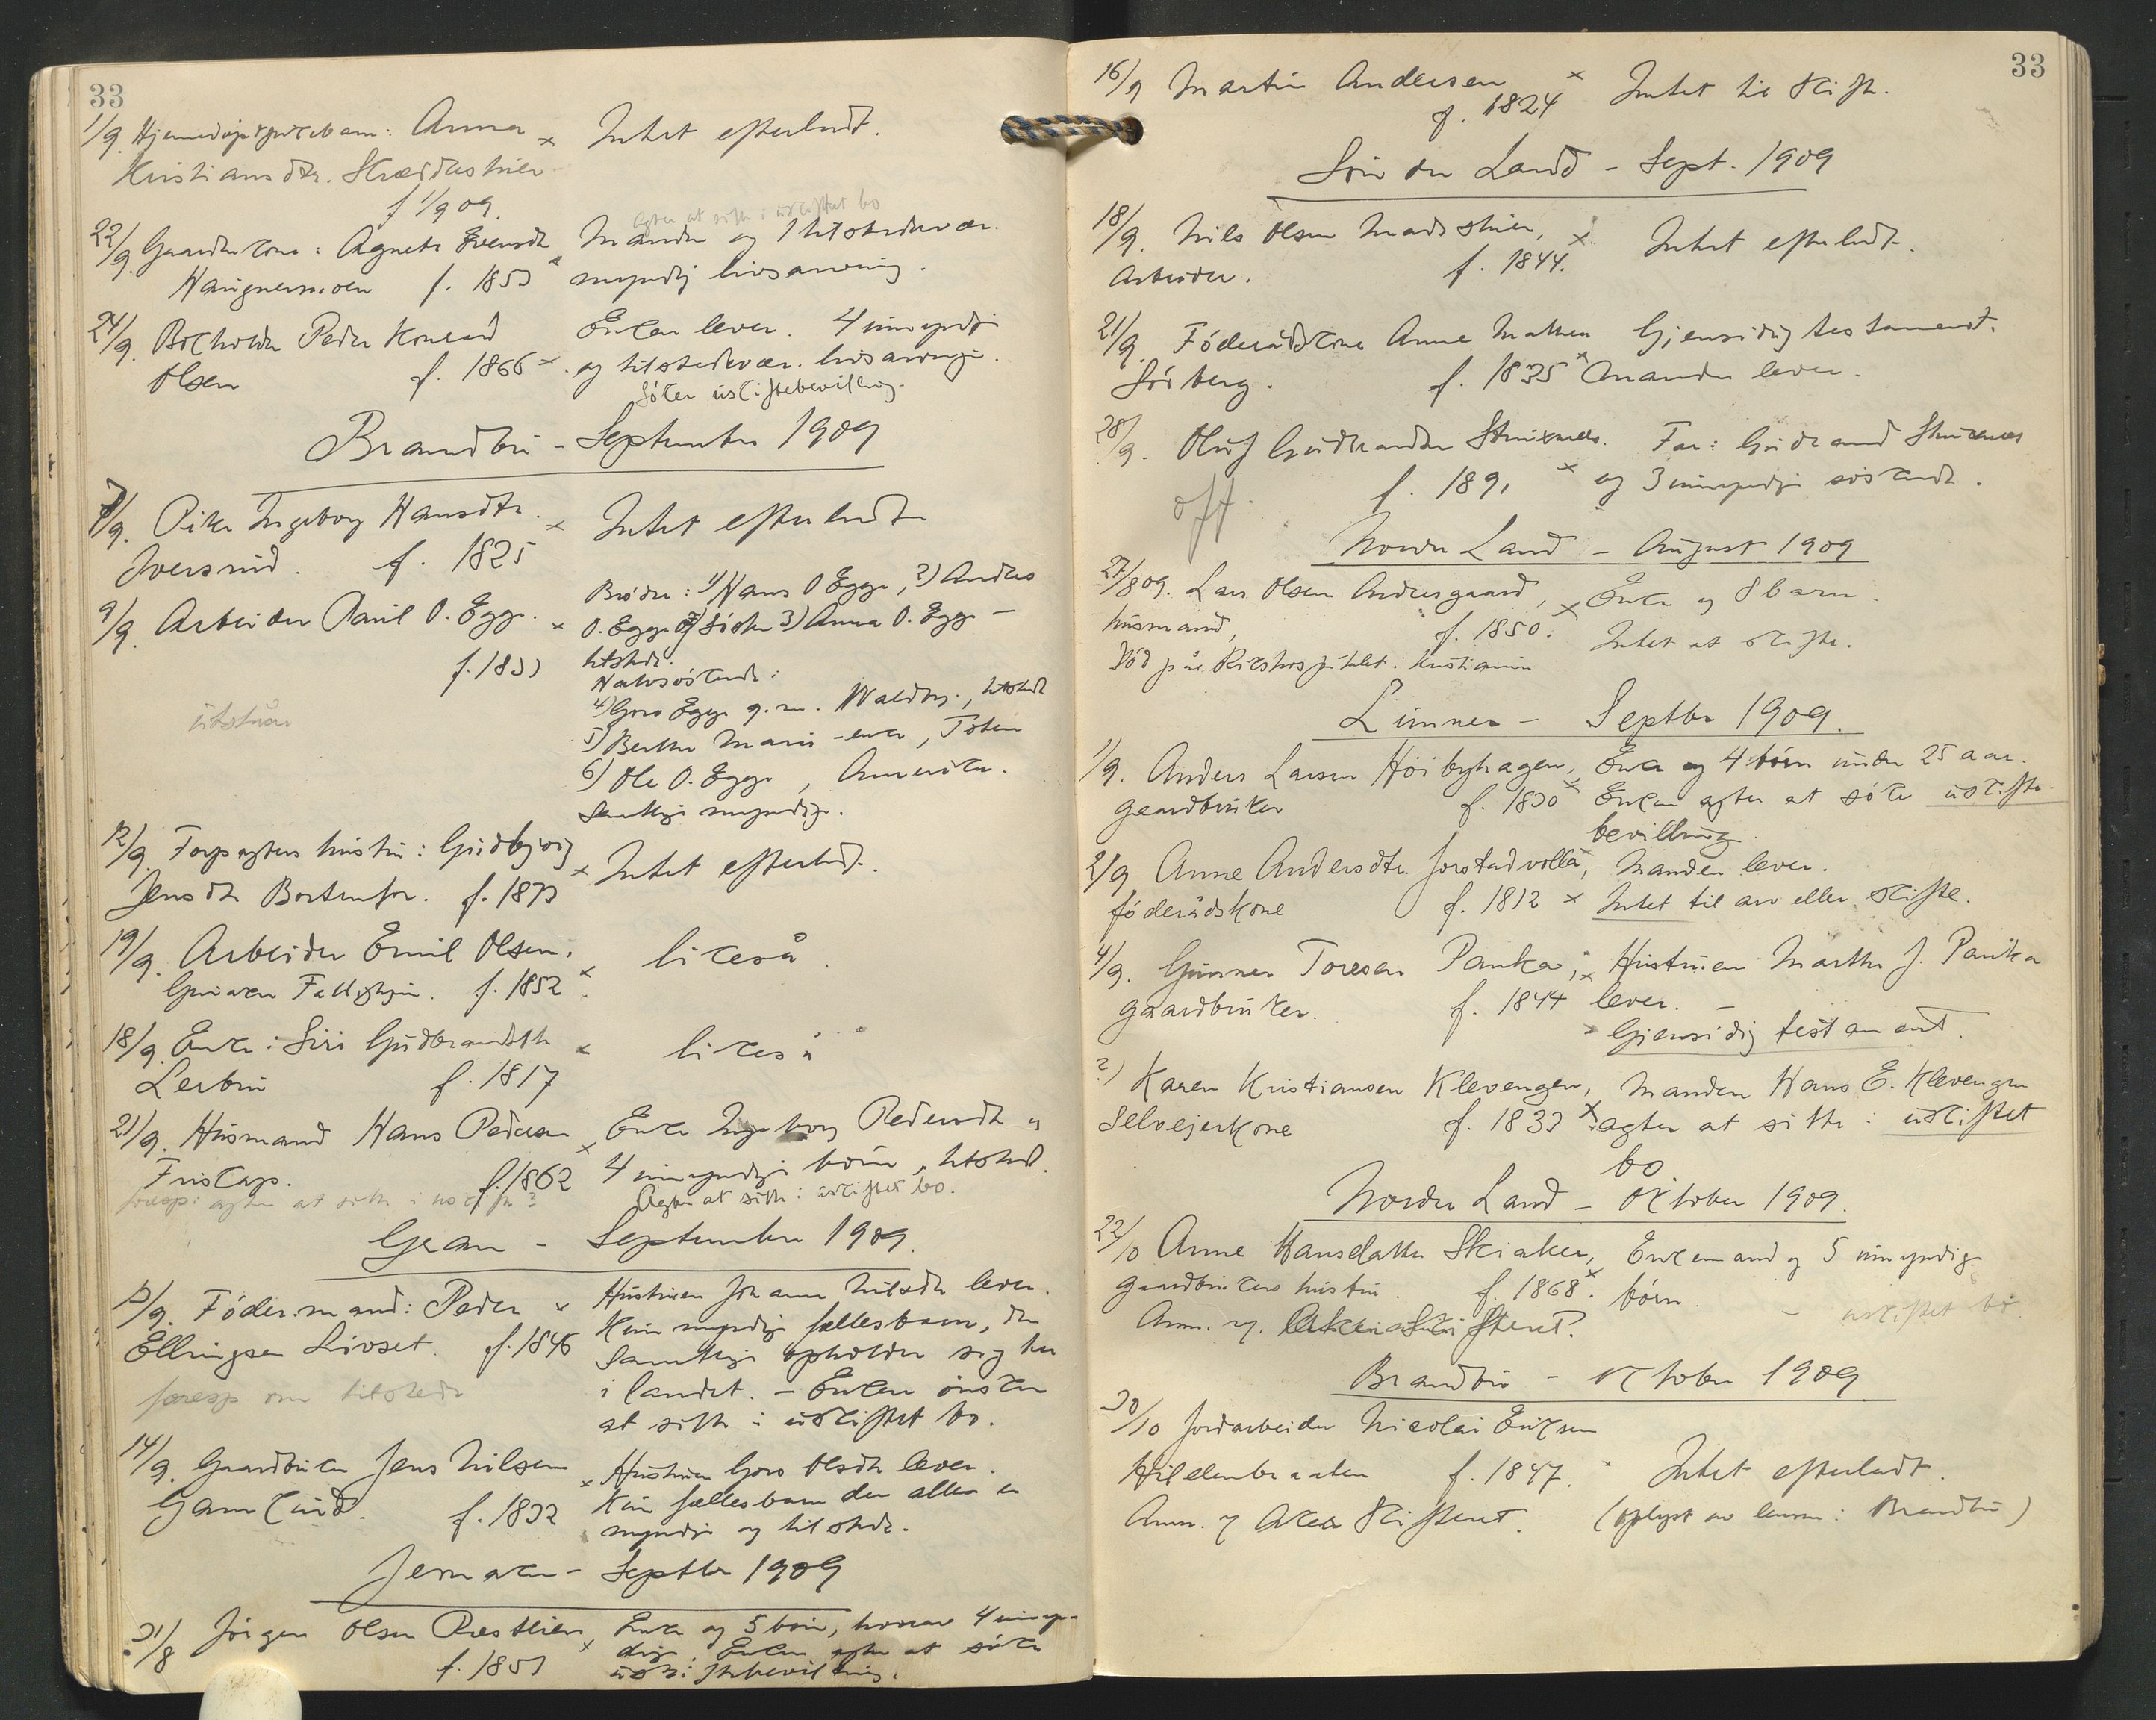 33
1/9. Hjemmedøpt pikebarn: Anna × Intet efterladt.
Kristiansdtr.
f 1/9 09.
agter at sitte i uskiftet bo
22/9 Gaardkone: Agnete Evensdtr Manden og 1 tilstedevær.
f. 1853 × myndig livsarving.
24/9. Peder Konrad Enken lever. 4 umyndige
Olsen f. 1866 × og tilstedevær. livsarvinge.
Søker uskiftebevilling.
Brandbu - September 1909
7/9. Pike Ingeborg Hansdtr. × Intet efterladt
Iversrud. f. 1825
9/9. Arbeider Paul O. Egge. × Brødre: 1) Hans O Egge, 2) Anders
O. Egge og Søster 3) Anna O. Egge -
f. 1833 tilstede.
Halvsøskende:
4) Goro Egge g. m. Waldby, tilstede
utstaar
5) Berthe Marie - enke, Toten
6) Ole O. Egge, Amerika.
Samtlige myndige.
12/9. Forpagters hustru: Gudbjørg × Intet efterladt.
Jensdtr f. 1873
19/9. Arbeider Emil Olsen, × likeså.
f. 1852
18/9. Enke: Siri Gudbrandsdtr × likeså
Lerbru f. 1817
21/9. Husmand Hans Pedersen × Enke Ingeborg Pedersdtr og
f. 1862 4 umyndige børn, tilsted.
foresp: agter at sitte i uskifte? Agter at sitte i uskiftet bo.
Gran - September 1909.
13/9. Føder.mand: Peder × Hustruen Johanne Nilsdtr lever.
Ellingsen Livset. f. 1846 Kun myndige fællesbarn, der
samtlige opholder sig her
foresp om tilstede i landet. - Enken ønsker
at sitte i uskiftet bo.
14/9. Gaardbruker Jens Nilsen × Hustruen Goro Olsdtr lever.
f. 1832 Kun fællesbarn der alle er
myndige og tilstede.
Jevnaker - Septbr 1909
31/8 Jørgen Olsen Præstlien × Enke og 5 børn, hvorav 4 umyn-
f. 1851 dige. Enken agter at søke
uskiftebevilling.
33
16/9 Martin Andersen × Intet til skifte.
f. 1824
Søndre Land - Sept. 1909
18/9. Nils Olsen × Intet efterladt.
Arbeider. f. 1844.
21/9. Føderådskone Anne Mathea Gjensidig testament.
Sørberg. f. 1835 × Manden lever.
28/9. Oluf Gudbrandsen Far: Gudbrand
f. 1891 × og 3 umyndige søskende.
off.
Nordre Land - August 1909
27/8 09. Lars Olsen Andersgaard, × Enke og 8 barn.
husmand, f. 1850. Intet at skifte.
Død på Rikshospitalet i Kristiania
Lunner - Septbr 1909.
1/9. Anders Larsen Høibyhagen, Enke og 4 børn under 25 aar.
gaardbruker f. 1830 × Enken agter at søke uskifte-
bevilling.
2/9. Anne Andersdtr. Jorstadvolla, Manden lever.
føderådskone f. 1812 × Intet til arv eller skifte.
4/9. Gunner Toresen Panka, × Hustruen Marthe J. Panka
gaardbruker. f. 1844 lever. -
Gjensidig testament.
?) Karen Kristiansen Klevengen, Manden Hans E. Klevengen
Selvejerkone f. 1833 × agter at sitte i uskiftet
bo.
Nordre Land - Oktober 1909.
22/10 Anne Hansdatter Skiaker, Enkemand og 5 umyndige
gaardbrukers hustru. f. 1868. × børn.
- uskiftet bo
Anm. av
Brandbu - Oktober 1909
30/10 Jordarbeider Nicolai Eriksen
Hildenbraaten f. 1847. Intet efterladt.
Anm. av (oplyst av lensm. i Brandbu)